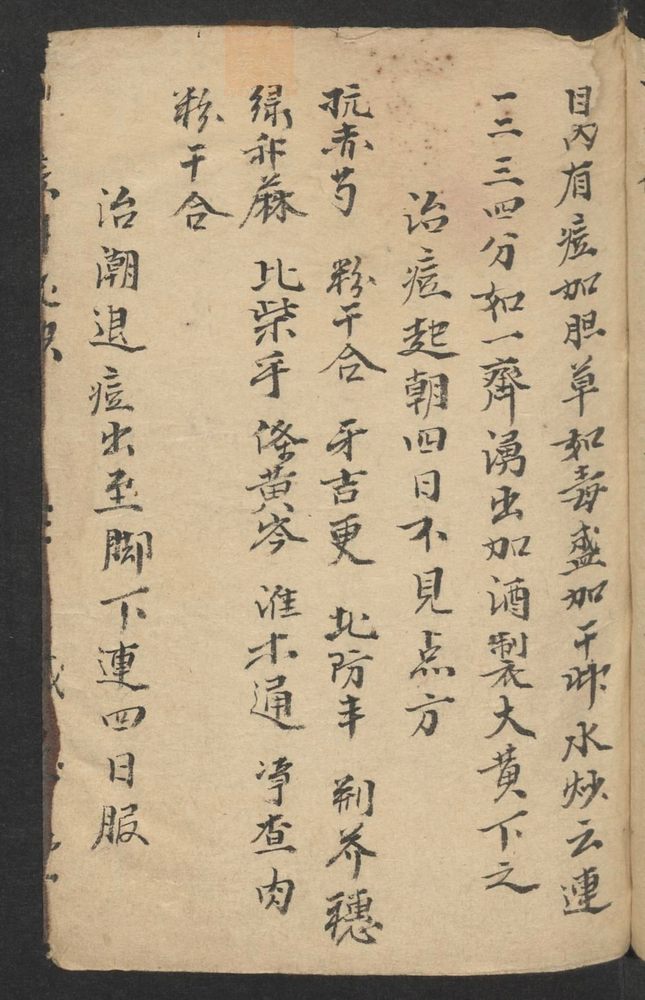 目內有痘如胆草如毒盛加干䏡水炒云連
一二三四分如一齊湧出加酒製大黃下之
治痘起朝四日不見点方
抗赤芍 粉干合 牙吉更 北防丰 荆芥穗
綠升蔴 比柴乎 條黃岑 淮木通 净查肉
粉干合
治潮退痘出至脚下連四日服